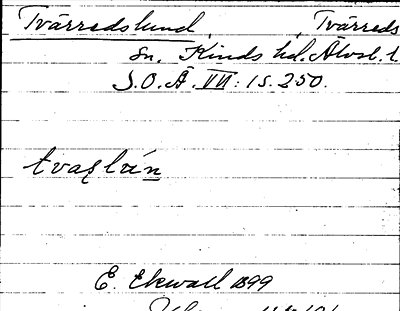 Tvärredslund, Tvärreds
sn. Kinds hd. Älvsb. l.
S.O.Ä. VII: 1 s. 250.
E. Ekwall 1899